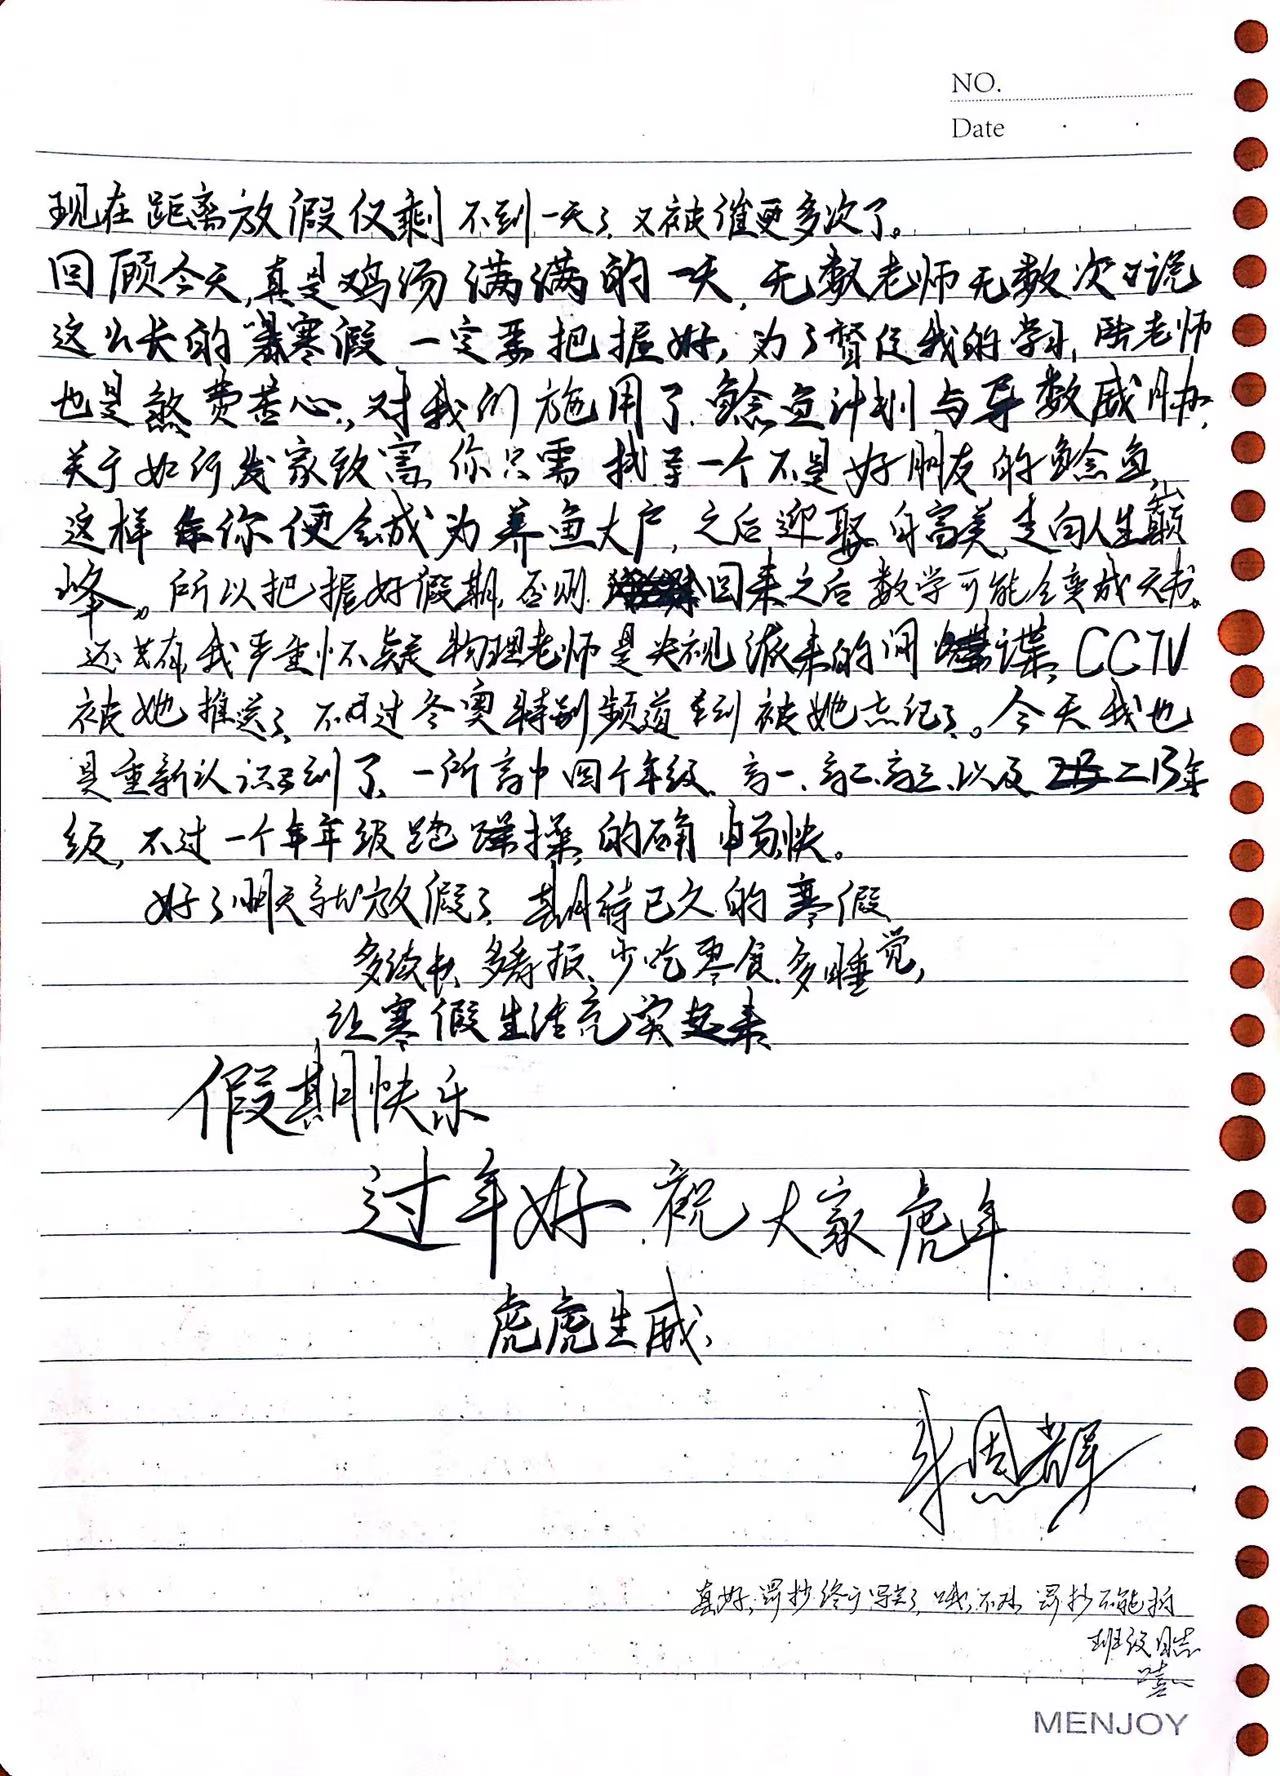 NO.
Date
现在距离放假仅剩不到一天了,又被催更多次了。
回顾今天,真是鸡汤满满的一天,无数老师无数次说
这么长的寒假一定要把握好,为了督促我的学习,陆老师
也是煞费苦心,对我们施用了鲶鱼计划与导数威胁,
关于如何发家致富,你只需找寻一个不是好朋友的鲶鱼,
这样你便会成为养鱼大户,之后迎娶白富美,走向人生巅
峰。所以把握好假期,否则回来之后数学可能会变成天书。
还有,我严重怀疑物理老师是央视派来的间谍,CCTV
被她推送了,不过冬奥特别频道到被她忘记了。今天我也
是重新认识到了,一所高中四个年级,高一、高二、高三、以及二13年
级,不过一个年年级跑操的确畅快。
好了明天就放假了,期待已久的寒假
多读书、多看报、少吃零食、多睡觉,
让寒假生活充实起来
假期快乐
过年好.祝大家虎年
虎虎生威、
恩辉
真好,罚抄终于写完了,哦,不对,罚抄不能写
班级日志
嘻
MENJOY